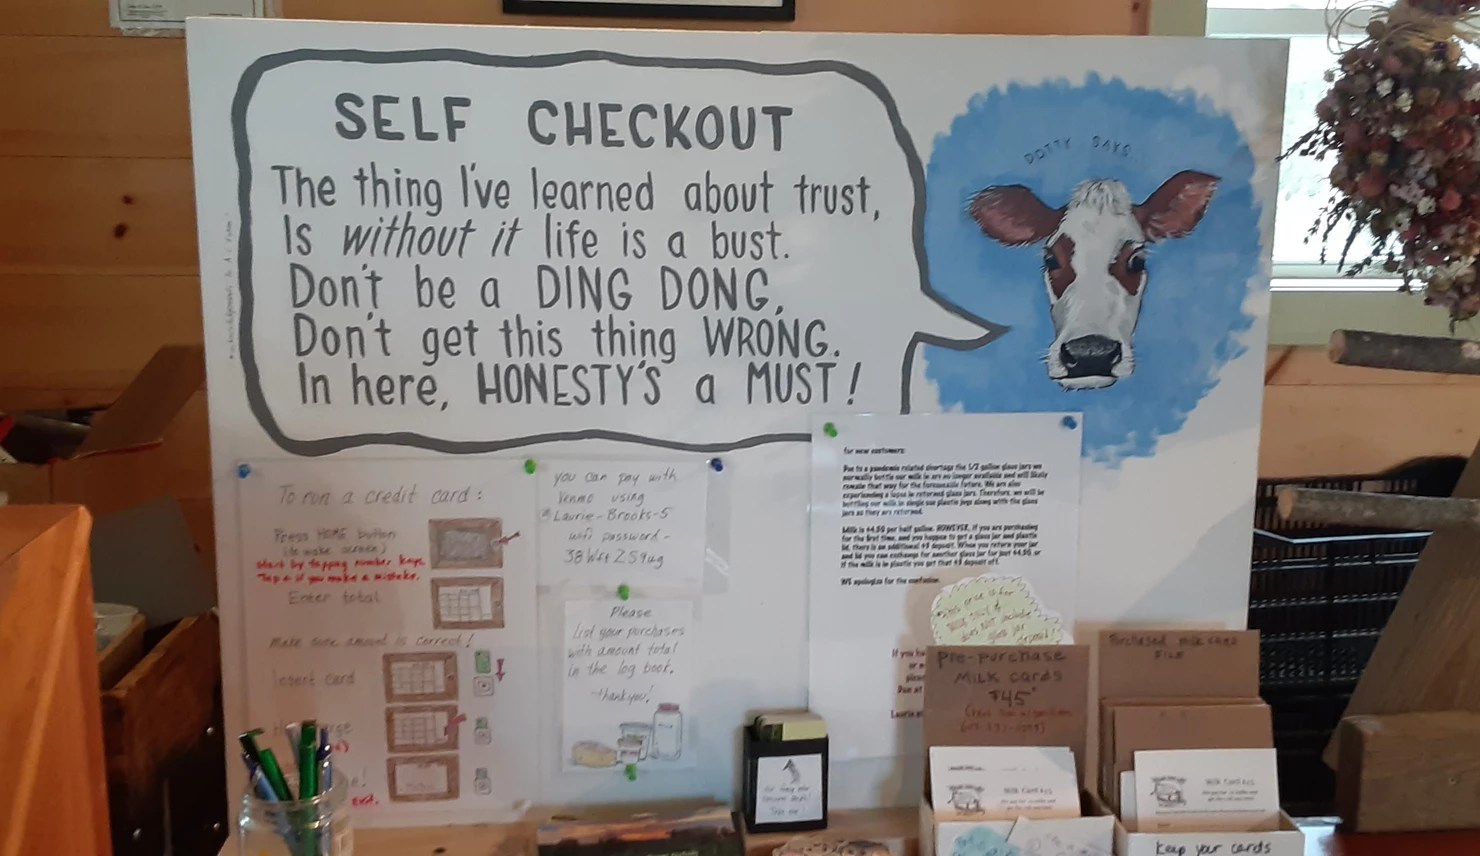 SELF CHECKOUT
The thing I've learned about trust,
Is without it life is a bust.
Don't be a DING DONG,
Don't get this thing WRONG.
In here, HONESTY'S a MUST!
DOTTY SAYS
To run a credit card:
Press HOME button
(to wake screen)
start by tapping number keys.
Tap if you make a mistake.
Enter total
Make sure amount is correct!
Insert card
exit.
you can pay with
Venmo using
@Laurie-Brooks-5
wifi password-
Please
List your purchases
with amount total
in the log book.
-thank you!
for new customers:
Due to a pandemic related shortage the 1/2 gallon glass jars we
normally bottle our milk in are no longer available and will likely
remain that way for the foreseeable future. We are also
experiencing a lapse in returned glass jars. Therefore, we will be
bottling our milk in single use plastic jugs along with the glass
jars as they are returned.
Milk is $4.50 per half gallon. HOWEVER, if you are purchasing
for the first time, and you happen to get a glass jar and plastic
lid, there is an additional $3 deposit. When you return your jar
and lid you can exchange for another glass jar for just $4.50, or
if the milk is in plastic you get that $3 deposit off.
WE apologize for the confusion.
If you ha
Pre-purchase
MILK cards
$45
Purchased milk card
FILE
Milk Card #25
keep your cards